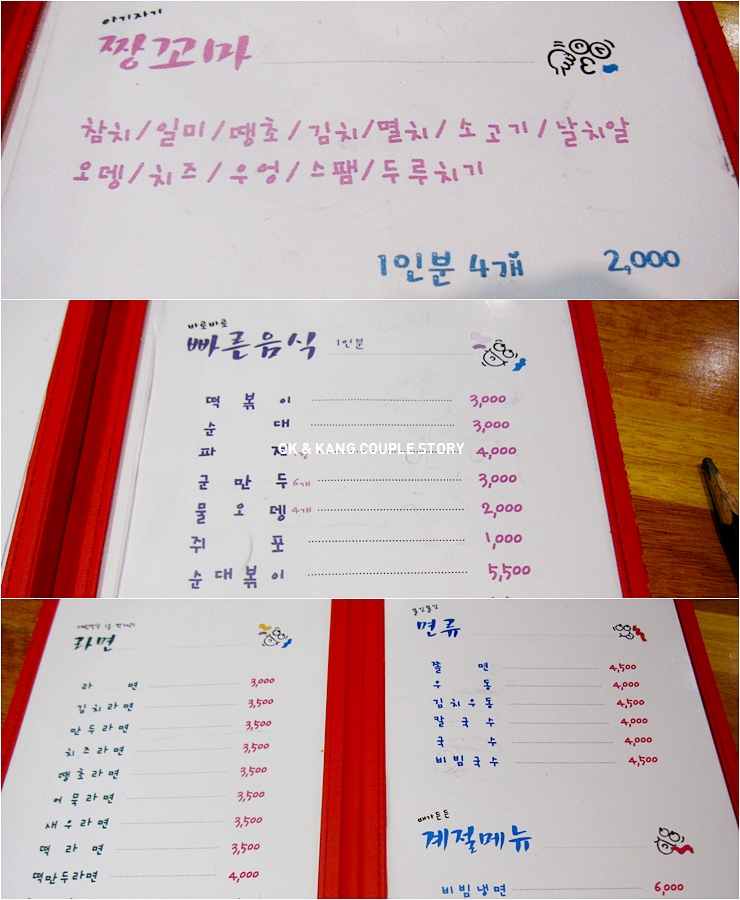 아기자기
짱꼬마
참치/일미/땡초/김치/멸치/소고기/날치알
오뎅/치즈/우엉/스팸/두루치기
1인분 4개 2,000
바로바로
빠른음식 1인분
떡볶이 3,000
순대 3,000
파전 4,000
OK & KANG COUPLE STORY
군만두 6개 3,000
물오뎅 4개 2,000
쥐포 1,000
순대볶이 5,500
라면
라면 3,000
김치라면 3,500
만두라면 3,500
치즈라면 3,500
땡초라면 3,500
어묵라면 3,500
새우라면 3,500
떡라면 3,500
떡만두라면 4,000
면류
쫄면 4,500
우동 4,000
김치우동 4,500
칼국수 4,000
국수 4,000
비빔국수 4,500
배가든든
계절메뉴
비빔냉면 6,000